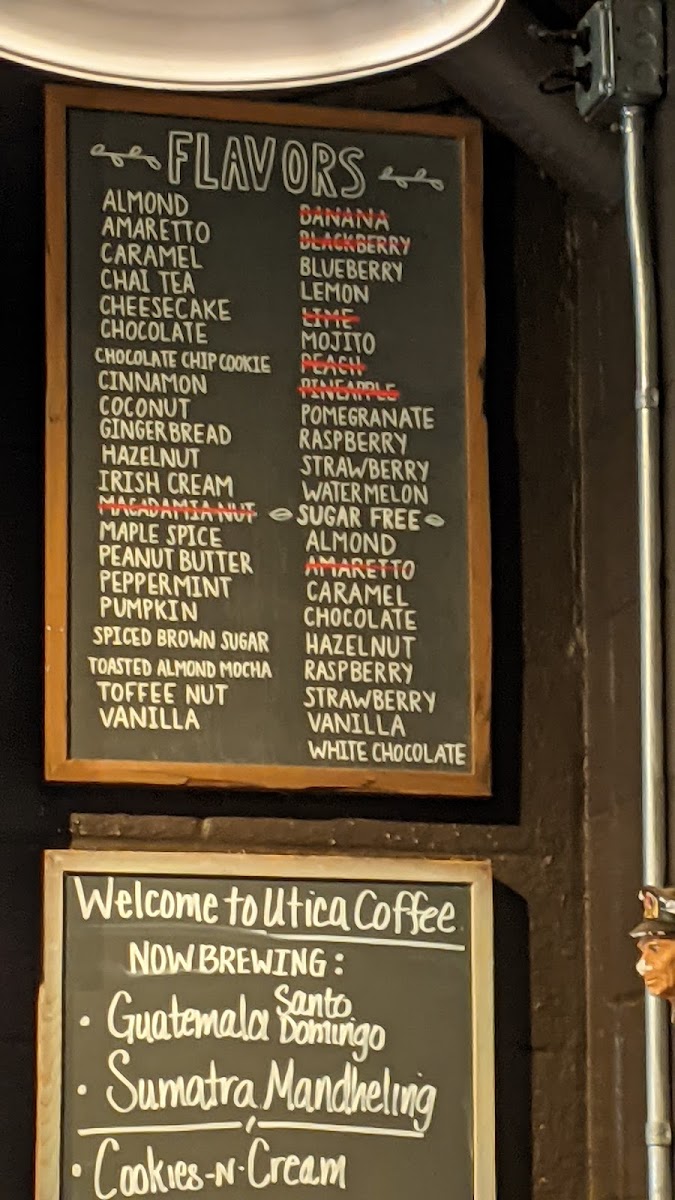 FLAVORS
ALMOND
AMARETTO
CARAMEL
CHAI TEA
CHEESECAKE
CHOCOLATE
CHOCOLATE CHIP COOKIE
CINNAMON
COCONUT
GINGERBREAD
HAZELNUT
IRISH CREAM
MACADAMIA NUT
MAPLE SPICE
PEANUT BUTTER
PEPPERMINT
PUMPKIN
SPICED BROWN SUGAR
TOASTED ALMOND MOCHA
TOFFEE NUT
VANILLA
BANANA
BLACKBERRY
BLUEBERRY
LEMON
LIME
MOJITO
PEACH
PINEAPPLE
POMEGRANATE
RASPBERRY
STRAWBERRY
WATERMELON
SUGAR FREE
ALMOND
AMARETTO
CARAMEL
CHOCOLATE
HAZELNUT
RASPBERRY
STRAWBERRY
VANILLA
WHITE CHOCOLATE
Welcome to Utica Coffee
NOW BREWING:
• Guatemala Santo Domingo
• Sumatra Mandheling
• Cookies-N-Cream